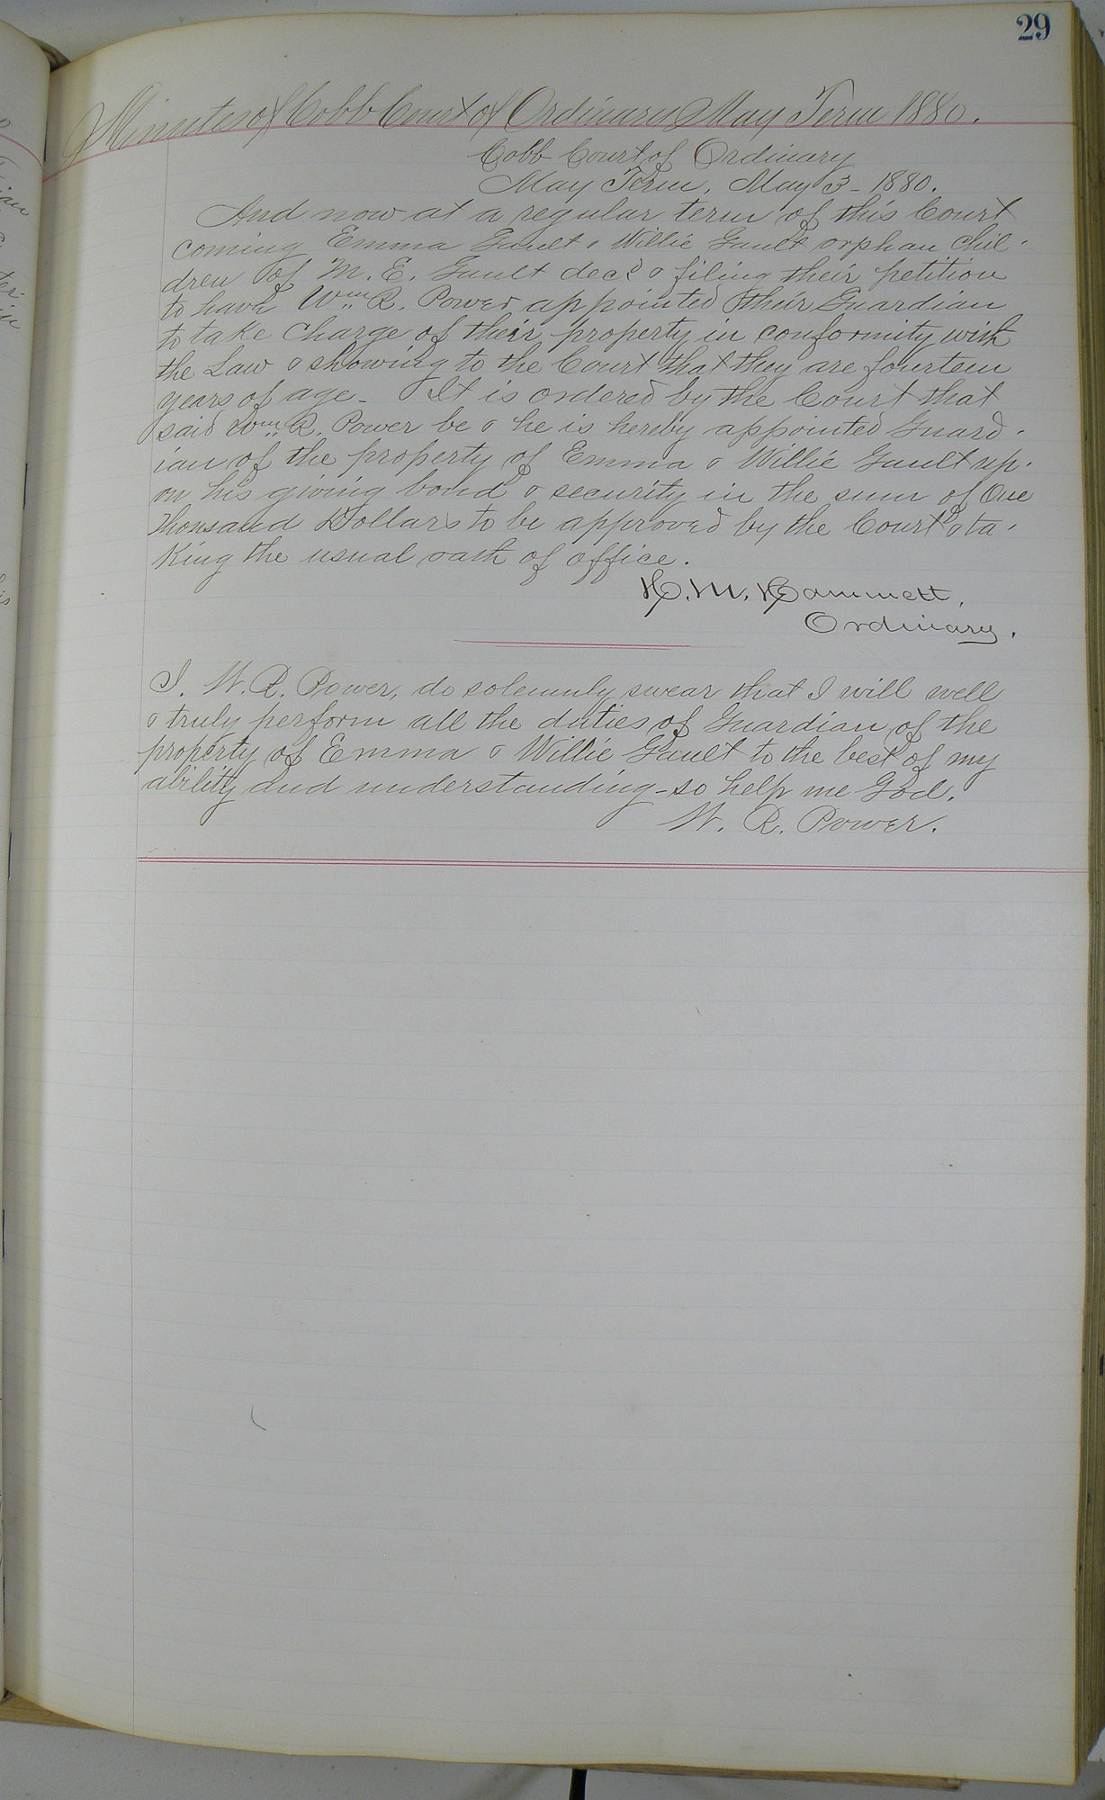 29
Minutes of Cobb Court of Ordinary May Term 1880.
Cobb Court of Ordinary
May Term, May 3 - 1880.
And now at a regular term of this Court
coming Emma Gault & Willie Gault orphan chil-
dren of M. E. Gault decd & filing their petition
to have Wm R. Power appointed their Guardian
to take charge of their property in conformity with
the Law & showing to the Court that they are fourteen
years of age - It is ordered by the Court that
said Wm R. Power be & he is hereby appointed Guard-
ian of the property of Emma & Willie Gault up-
on his giving bond & security in the sum of One
Thousand Dollars to be approved by the Court & ta-
king the usual oath of office.
H. M. Hammett,
Ordinary.
I. W. R. Power, do solemnly swear that I will well
& truly perform all the duties of Guardian of the
property of Emma & Willie Gault to the best of my
ability and understanding - so help me God.
W. R. Power.